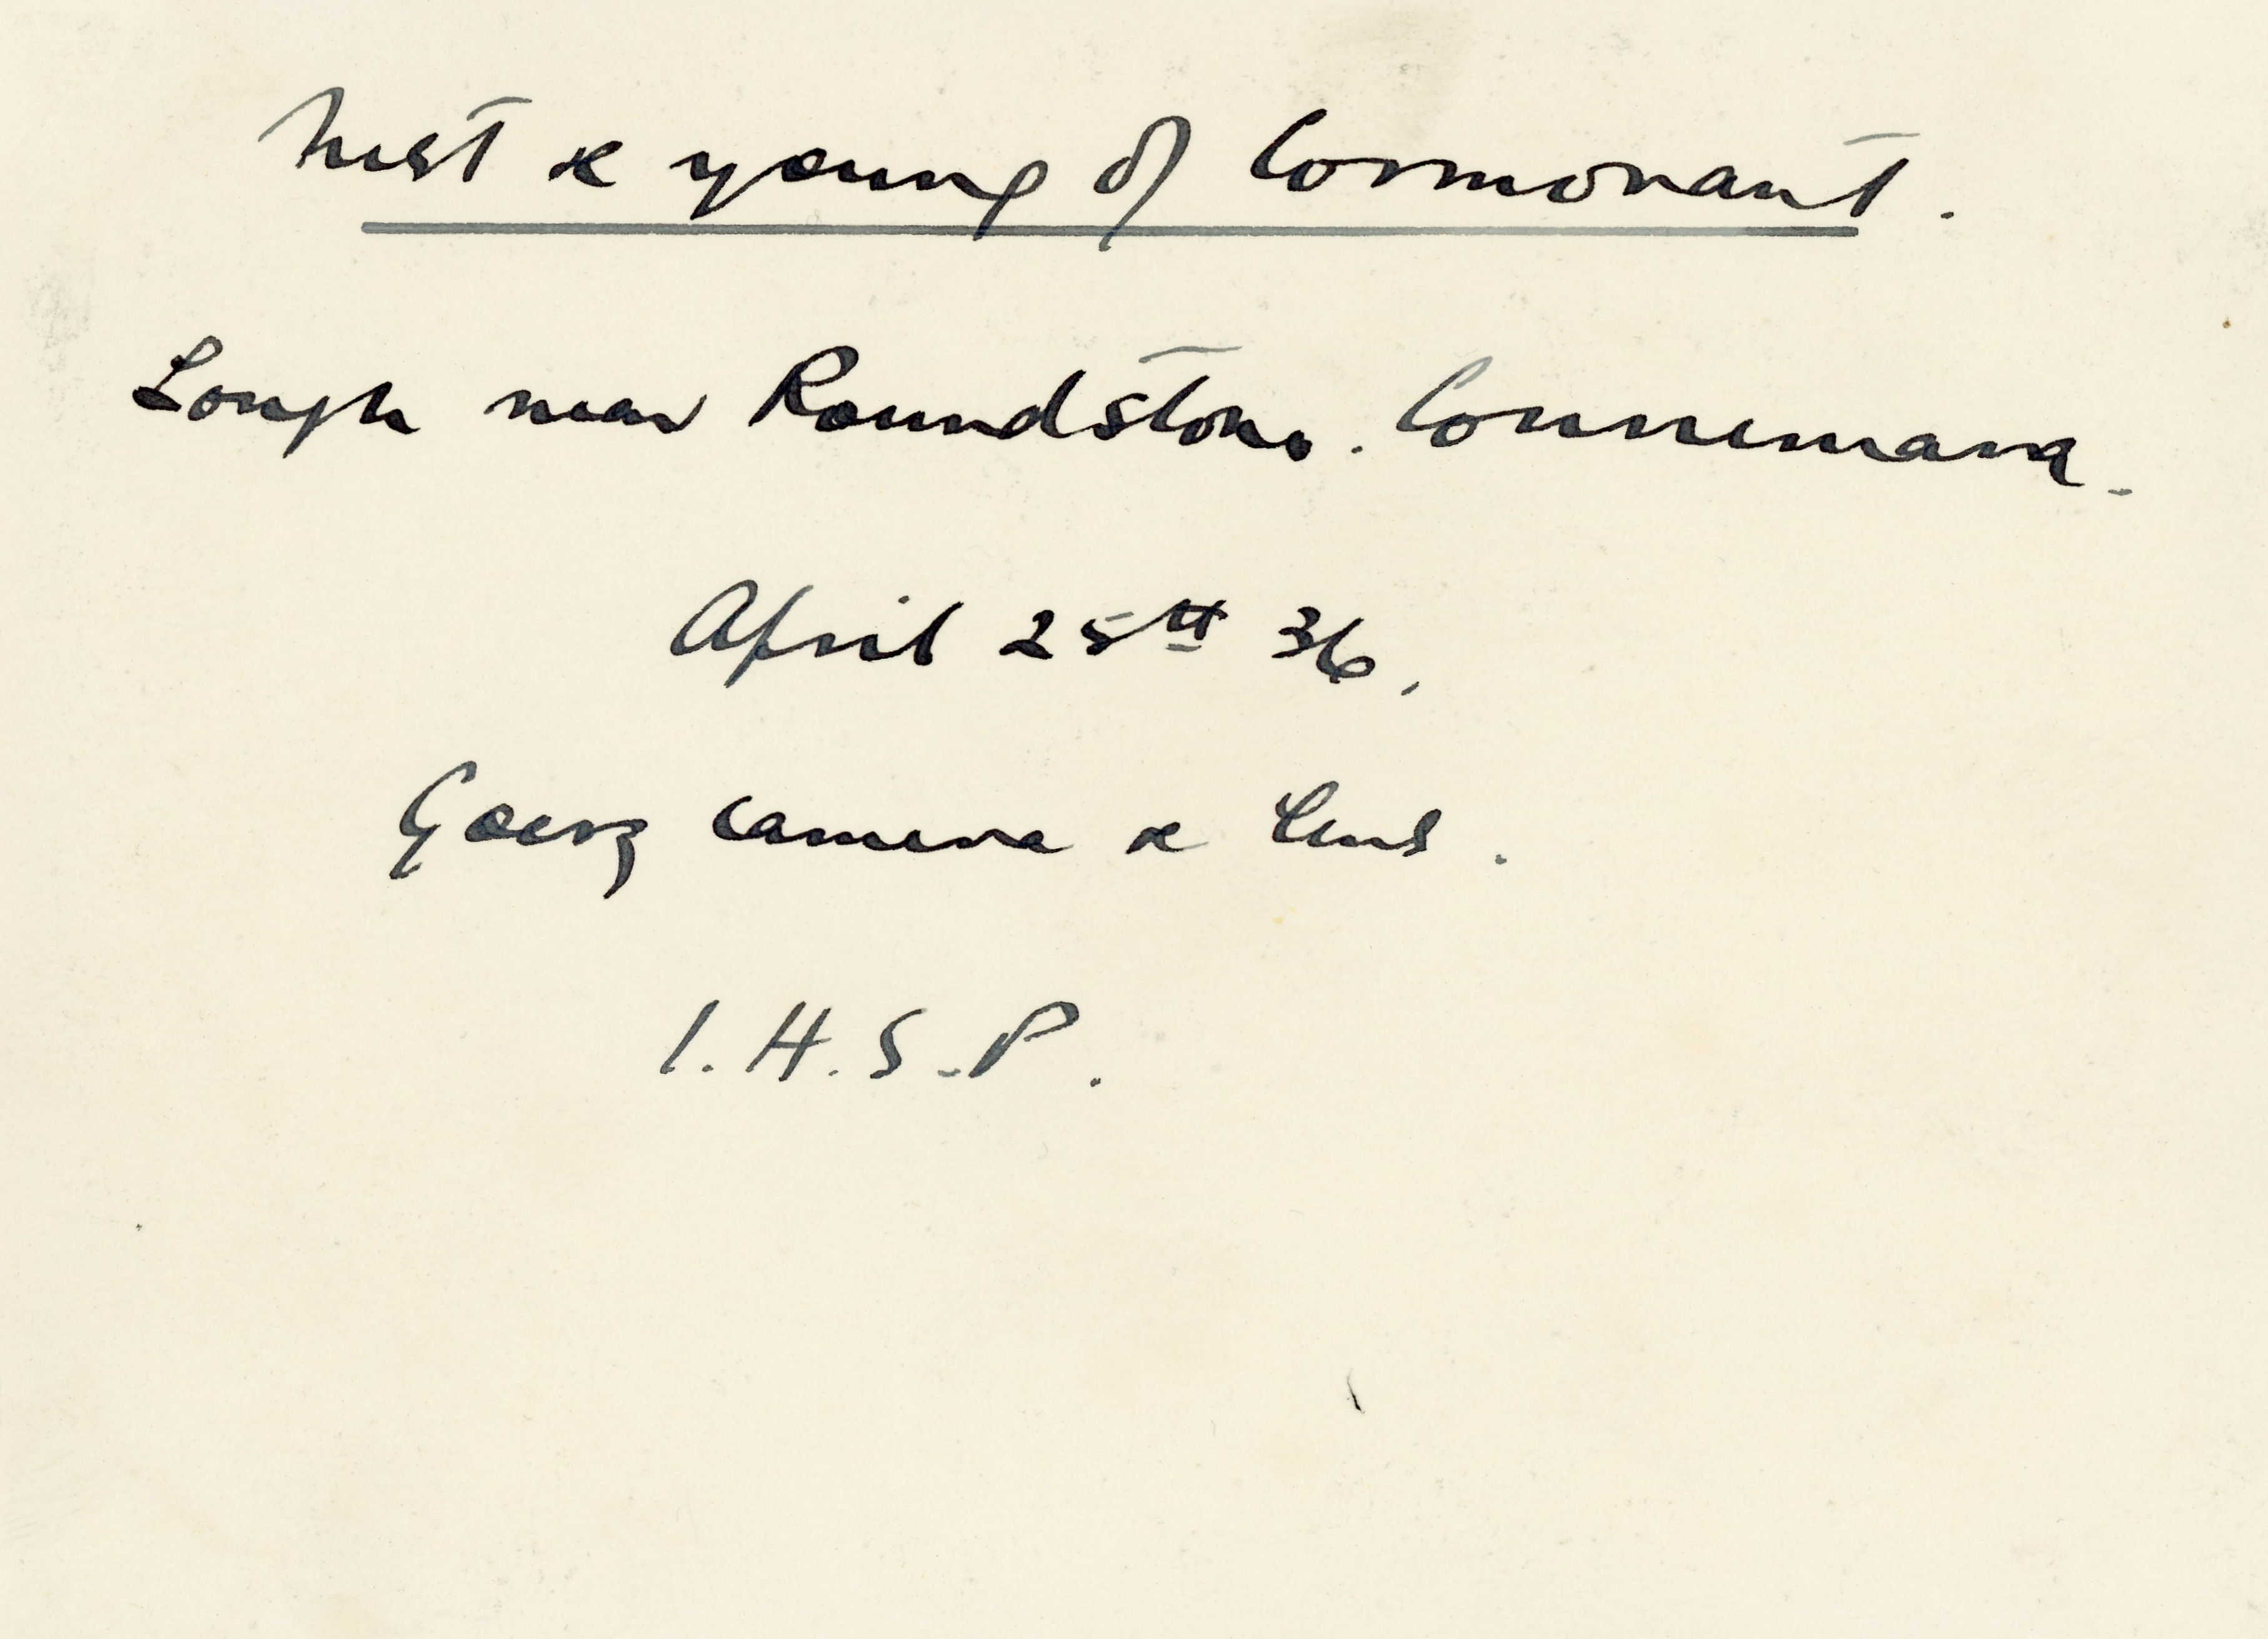 Nest & young of Cormorant.
Lough near Roundstone. Connemara.
April 25th 36.
Goerz camera & lens.
I.H.S.P.